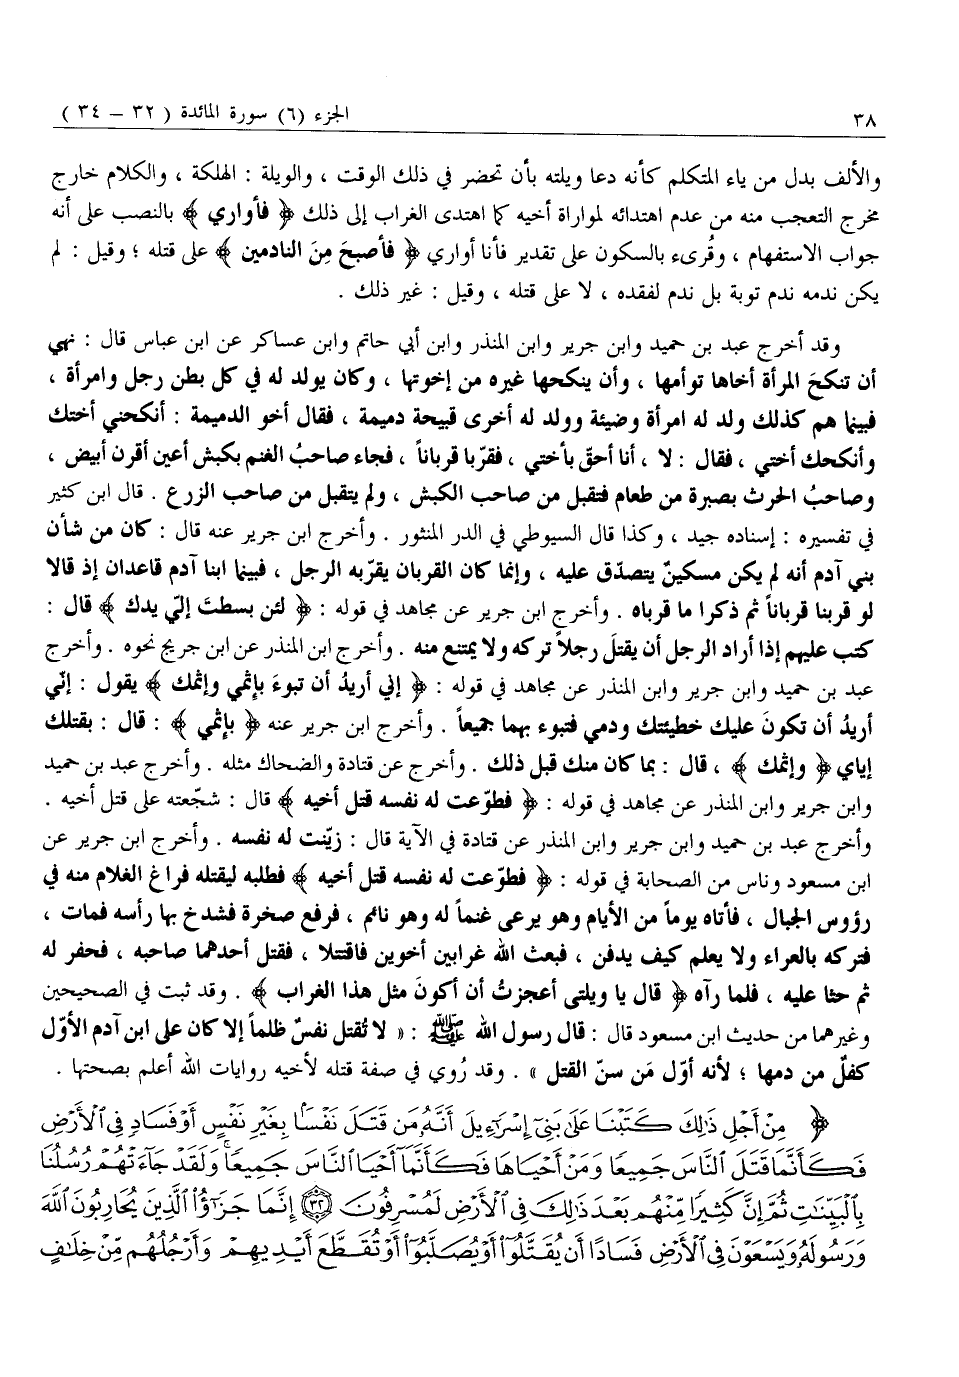 ٣٨ الجزء (٦) سورة المائدة ( ٣٢ – ٣٤ )
والألف بدل من ياء المتكلم كأنه دعا ويلته بأن تحضر في ذلك الوقت ، والويلة : الهلكة ، والكلام خارج
مخرج التعجب منه من عدم اهتدائه لمواراة أخيه كما اهتدى الغراب إلى ذلك ﴿ فأواري ﴾ بالنصب على أنه
جواب الاستفهام ، وقُرىء بالسكون على تقدير فأنا أواري ﴿ فأصبحَ مِنَ النادمين ﴾ على قتله ؛ وقيل : لم
يكن ندمه ندم توبة بل ندم لفقده ، لا على قتله ، وقيل : غير ذلك .
وقد أخرج عبد بن حميد وابن جرير وابن المنذر وابن أبي حاتم وابن عساكر عن ابن عباس قال : نهي
أن تنكحَ المرأة أخاها توأمها ، وأن ينكحها غيره من إخوتها ، وكان يولد له في كل بطن رجل وامرأة ،
فبينما هم كذلك ولد له امرأة وضيئة وولد له أخرى قبيحة دميمة ، فقال أخو الدميمة : أنكحني أختك
وأنكحك أختي ، فقال : لا ، أنا أحقّ بأختي ، فقرّبا قرباناً ، فجاء صاحبُ الغنم بكبش أعين أقرن أبيض ،
وصاحبُ الحرث بصبرة من طعام فتقبل من صاحب الكبش ، ولم يتقبل من صاحب الزرع . قال ابن كثير
في تفسيره : إسناده جيد ، وكذا قال السيوطي في الدر المنثور . وأخرج ابن جرير عنه قال : كان من شأن
بني آدم أنه لم يكن مسكينٌ يتصدّق عليه ، وإنما كان القربان يقرّبه الرجل ، فبينما ابنا آدم قاعدان إذ قالا
لو قربنا قرباناً ثم ذكرا ما قرباه . وأخرج ابن جرير عن مجاهد في قوله : ﴿ لئن بسطتَ إليّ يدك ﴾ قال :
كتب عليهم إذا أراد الرجل أن يقتلَ رجلاً تركه ولا يمتنع منه . وأخرج ابن المنذر عن ابن جريج نحوه . وأخرج
عبد بن حميد وابن جرير وابن المنذر عن مجاهد في قوله : ﴿ إني أريدُ أن تبوءَ بإثمي وإثمك ﴾ يقول : إنّي
أريدُ أن تكونَ عليك خطيئتك ودمي فتبوء بهما جميعاً . وأخرج ابن جرير عنه ﴿ بإثمي ﴾ : قال : بقتلك
إياي ﴿ وإثمك ﴾ ، قال : بما كان منك قبل ذلك . وأخرج عن قتادة والضحاك مثله . وأخرج عبد بن حميد
وابن جرير وابن المنذر عن مجاهد في قوله : ﴿ فطوّعت له نفسه قتل أخيه ﴾ قال : شجّعته على قتل أخيه .
وأخرج عبد بن حميد وابن جرير وابن المنذر عن قتادة في الآية قال : زيّنت له نفسه . وأخرج ابن جرير عن
ابن مسعود وناس من الصحابة في قوله : ﴿ فطوّعت له نفسه قتل أخيه ﴾ فطلبه ليقتله فراغ الغلام منه في
رؤوس الجبال ، فأتاه يوماً من الأيام وهو يرعى غنماً له وهو نائم ، فرفع صخرة فشدخ بها رأسه فمات ،
فتركه بالعراء ولا يعلم كيف يدفن ، فبعث الله غرابين أخوين فاقتتلا ، فقتل أحدهما صاحبه ، فحفر له
ثم حثا عليه ، فلما رآه ﴿ قال يا ويلتى أعجزتُ أن أكونَ مثل هذا الغراب ﴾ . وقد ثبت في الصحيحين
وغيرهما من حديث ابن مسعود قال : قال رسول الله ﷺ : « لا تُقتل نفسٌ ظلماً إلا كان على ابن آدم الأوّل
كفلٌ من دمها ؛ لأنه أوّل مَن سنّ القتل » . وقد رُوي في صفة قتله لأخيه روايات الله أعلم بصحتها .
﴿ مِنْ أَجْلِ ذَٰلِكَ كَتَبْنَا عَلَىٰ بَنِىٓ إِسْرَٰٓءِيلَ أَنَّهُۥ مَن قَتَلَ نَفْسًۢا بِغَيْرِ نَفْسٍ أَوْ فَسَادٍ فِى ٱلْأَرْضِ
فَكَأَنَّمَا قَتَلَ ٱلنَّاسَ جَمِيعًا وَمَنْ أَحْيَاهَا فَكَأَنَّمَآ أَحْيَا ٱلنَّاسَ جَمِيعًا ۚ وَلَقَدْ جَآءَتْهُمْ رُسُلُنَا
بِٱلْبَيِّنَٰتِ ثُمَّ إِنَّ كَثِيرًا مِّنْهُم بَعْدَ ذَٰلِكَ فِى ٱلْأَرْضِ لَمُسْرِفُونَ ٣٢ إِنَّمَا جَزَٰٓؤُا۟ ٱلَّذِينَ يُحَارِبُونَ ٱللَّهَ
وَرَسُولَهُۥ وَيَسْعَوْنَ فِى ٱلْأَرْضِ فَسَادًا أَن يُقَتَّلُوٓا۟ أَوْ يُصَلَّبُوٓا۟ أَوْ تُقَطَّعَ أَيْدِيهِمْ وَأَرْجُلُهُم مِّنْ خِلَٰفٍ